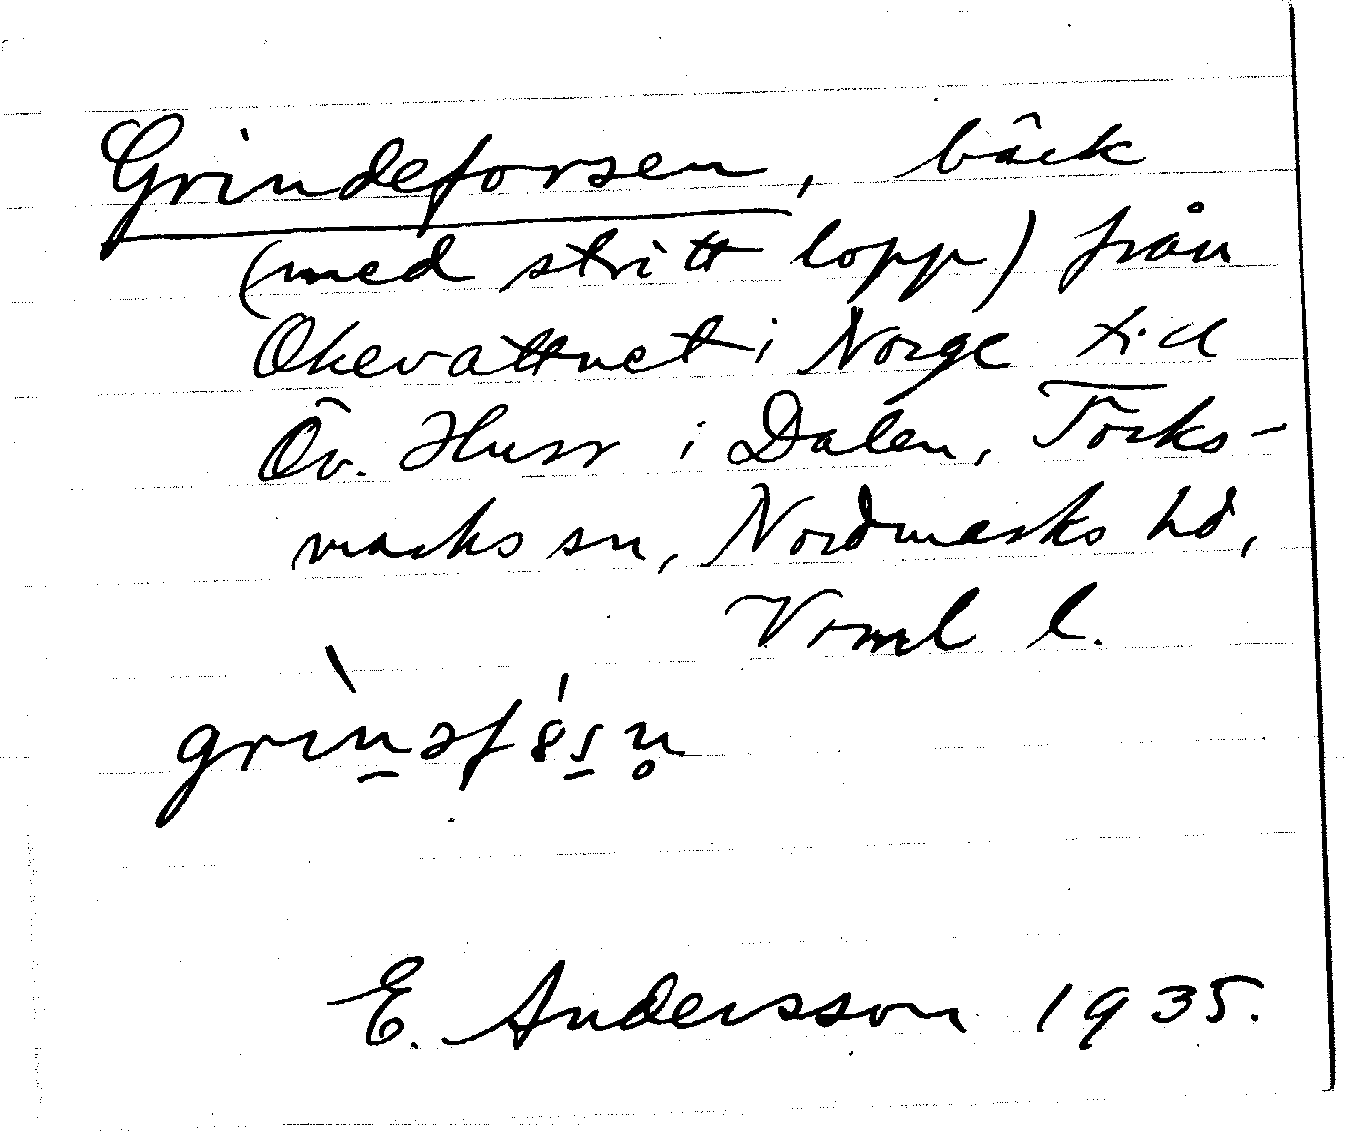 Grindeforsen, bäck
(med stritt lopp) från
Okevattnet i Norge till
Öv. Husr i Dalen, Töcks-
marks sn, Nordmarks hd,
Vrml l.
E. Andersson 1935.